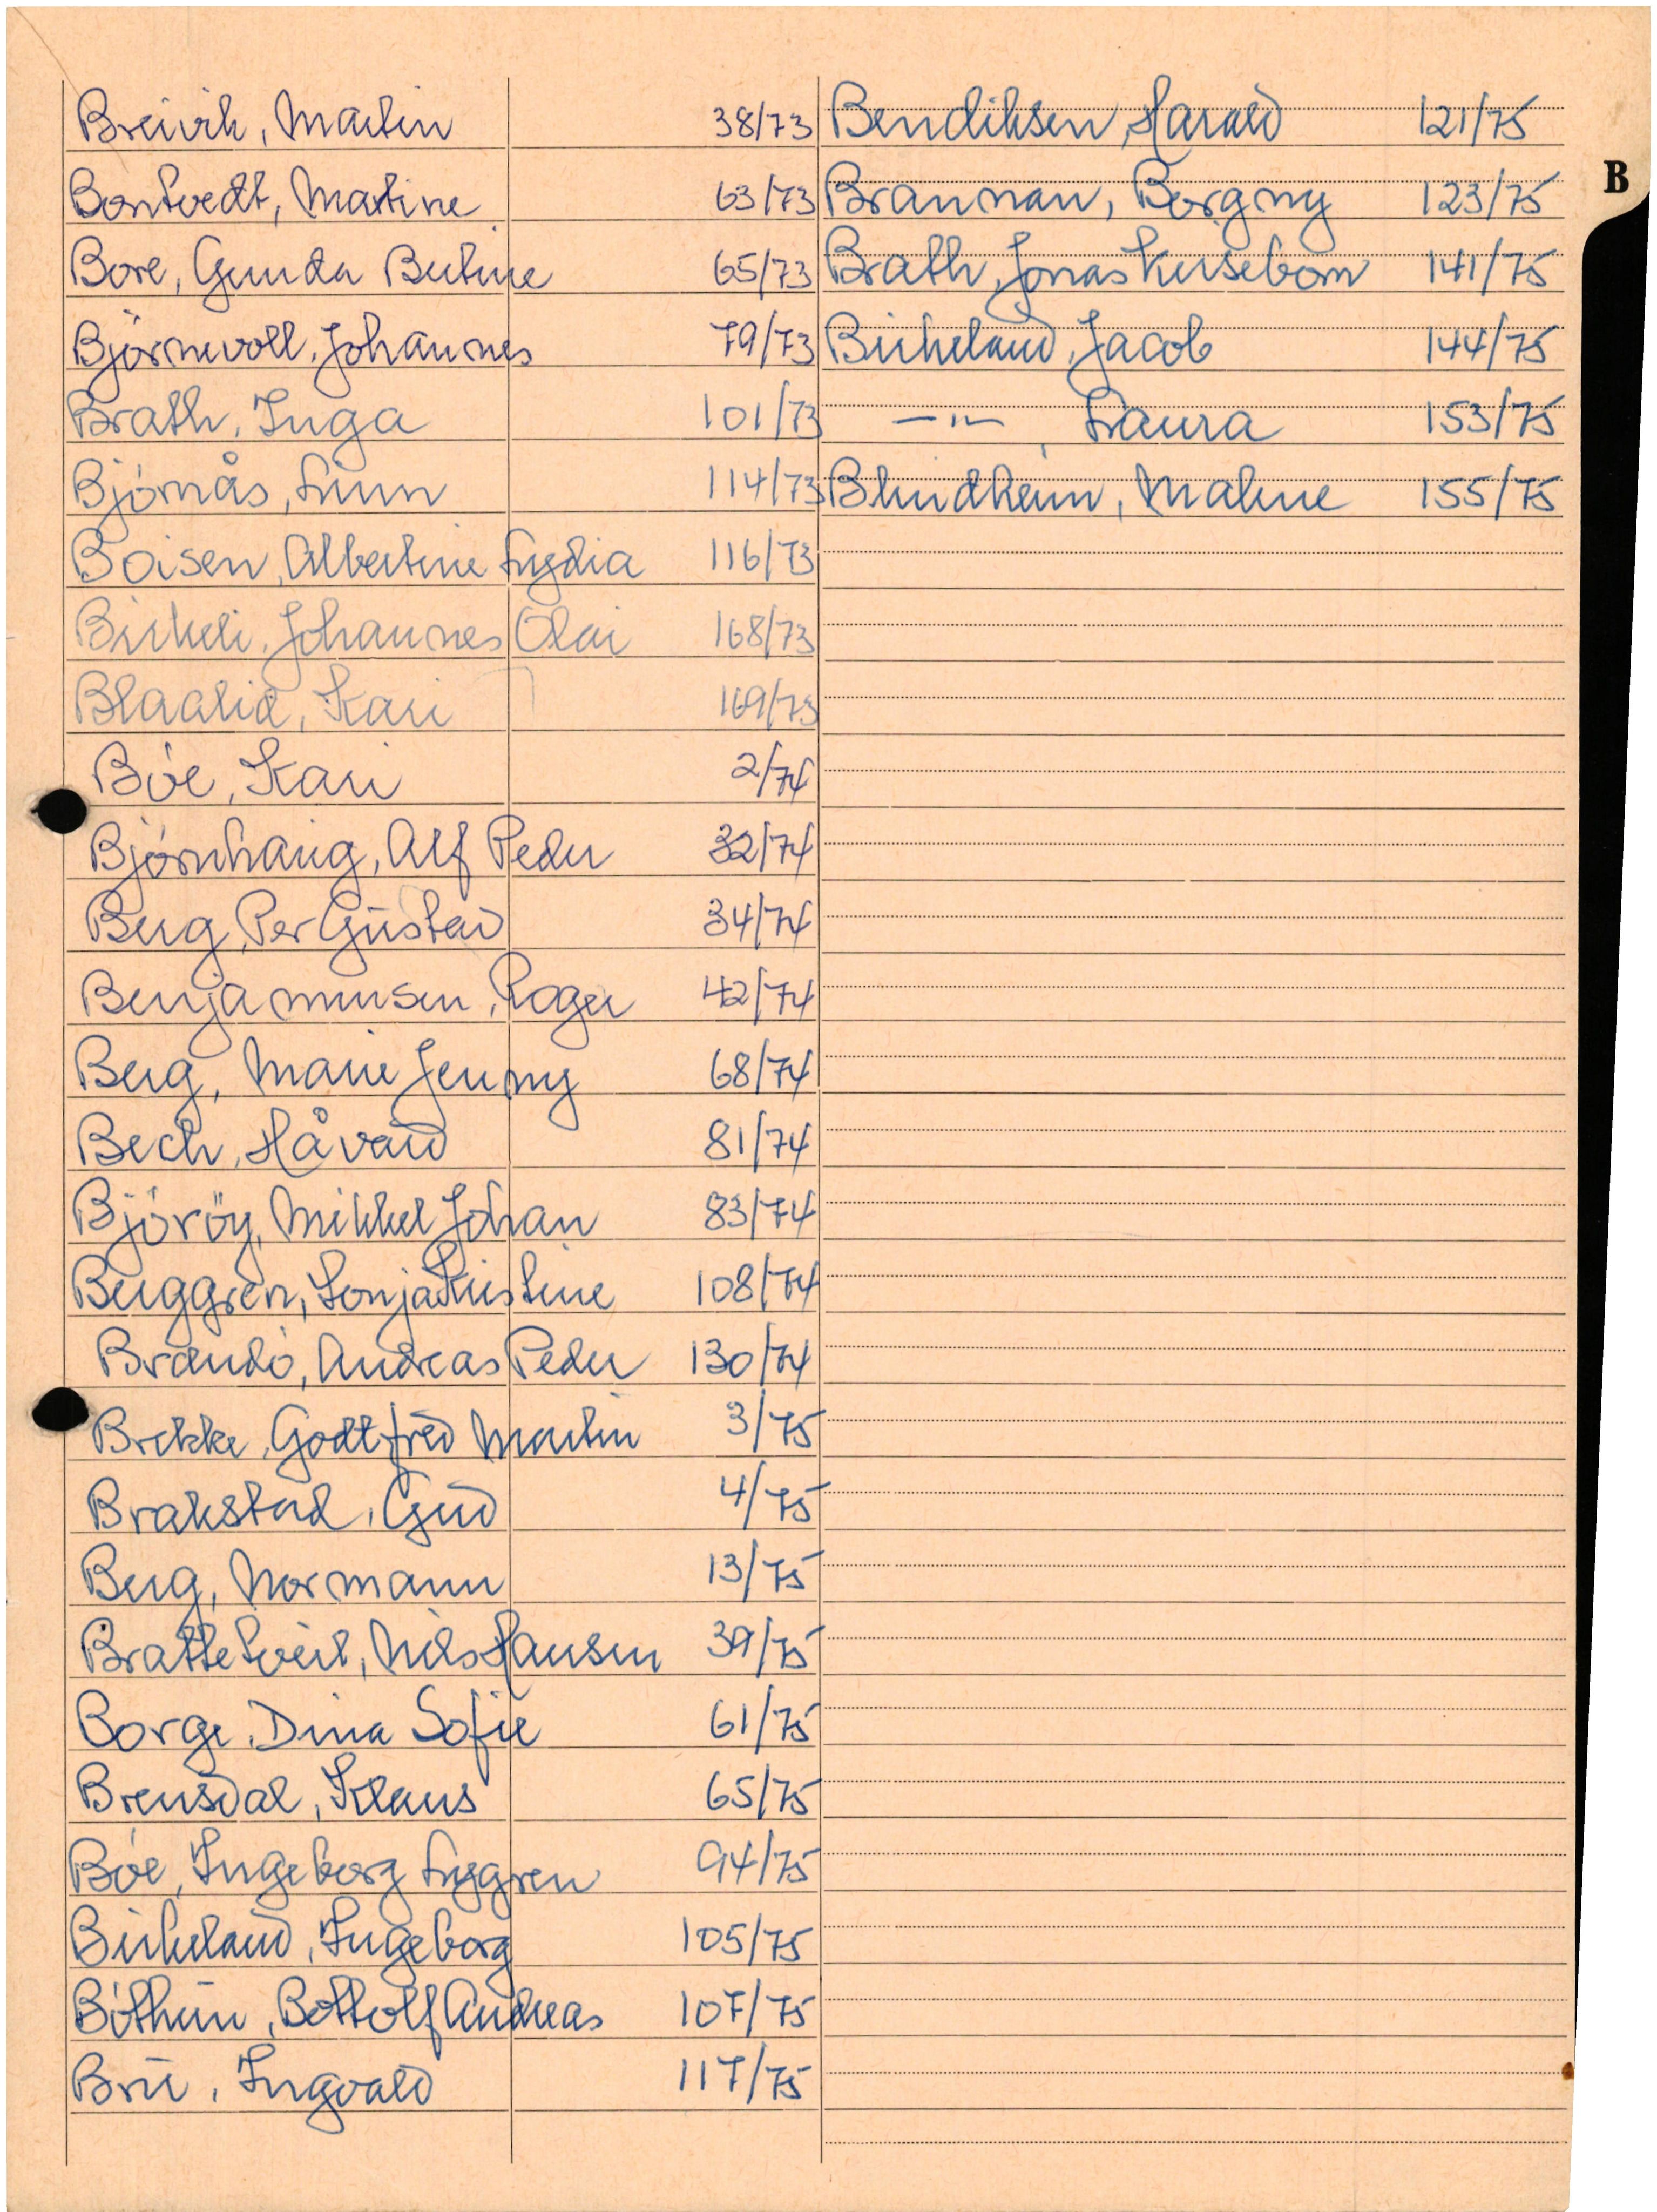 Breivik, Martin 38/73
Bontvedt, Martine 63/73
Bore, Gunda Bertine 65/73
Bjørnevoll, Johannes 79/73
Brath, Inga 101/73
Bjørnås, Linn 114/73
Boisen, Albertine Lydia 116/73
Birkeli, Johannes Olai 168/73
Blaalid, Kari 169/73
Bøe, Kari 2/74
Bjørnhaug, Alf Peder 32/74
Berg, Per Gustav 34/74
Benjaminsen, Roger 42/74
Berg, Marie Jenny 68/74
Bech, Håvard 81/74
Bjørøy, Mikkel Johan 83/74
Berggren, Sonja Kristine 108/74
Brandø, Andreas Peder 130/74
Brekke, Godtfred Martin 3/75
Brakstad, Gud 4/75
Berg, Normann 13/75
Bratteteveit, Nils Hansen 39/75
Borge, Dina Sofie 61/75
Brensdal, Klaus 65/75
Bøe, Ingeborg Lyggren 94/75
Birkeland, Ingeborg 105/75
Bøthun, Bottolf Andreas 107/75
Bru, Ingvald 117/75
Bendiksen, Harald 121/75
B
Brannan, Borgny 123/75
Brath, Jonas Kirsebom 141/75
Birkeland, Jacob 144/75
—"— , Laura 153/75
Blindheim, Maline 155/75